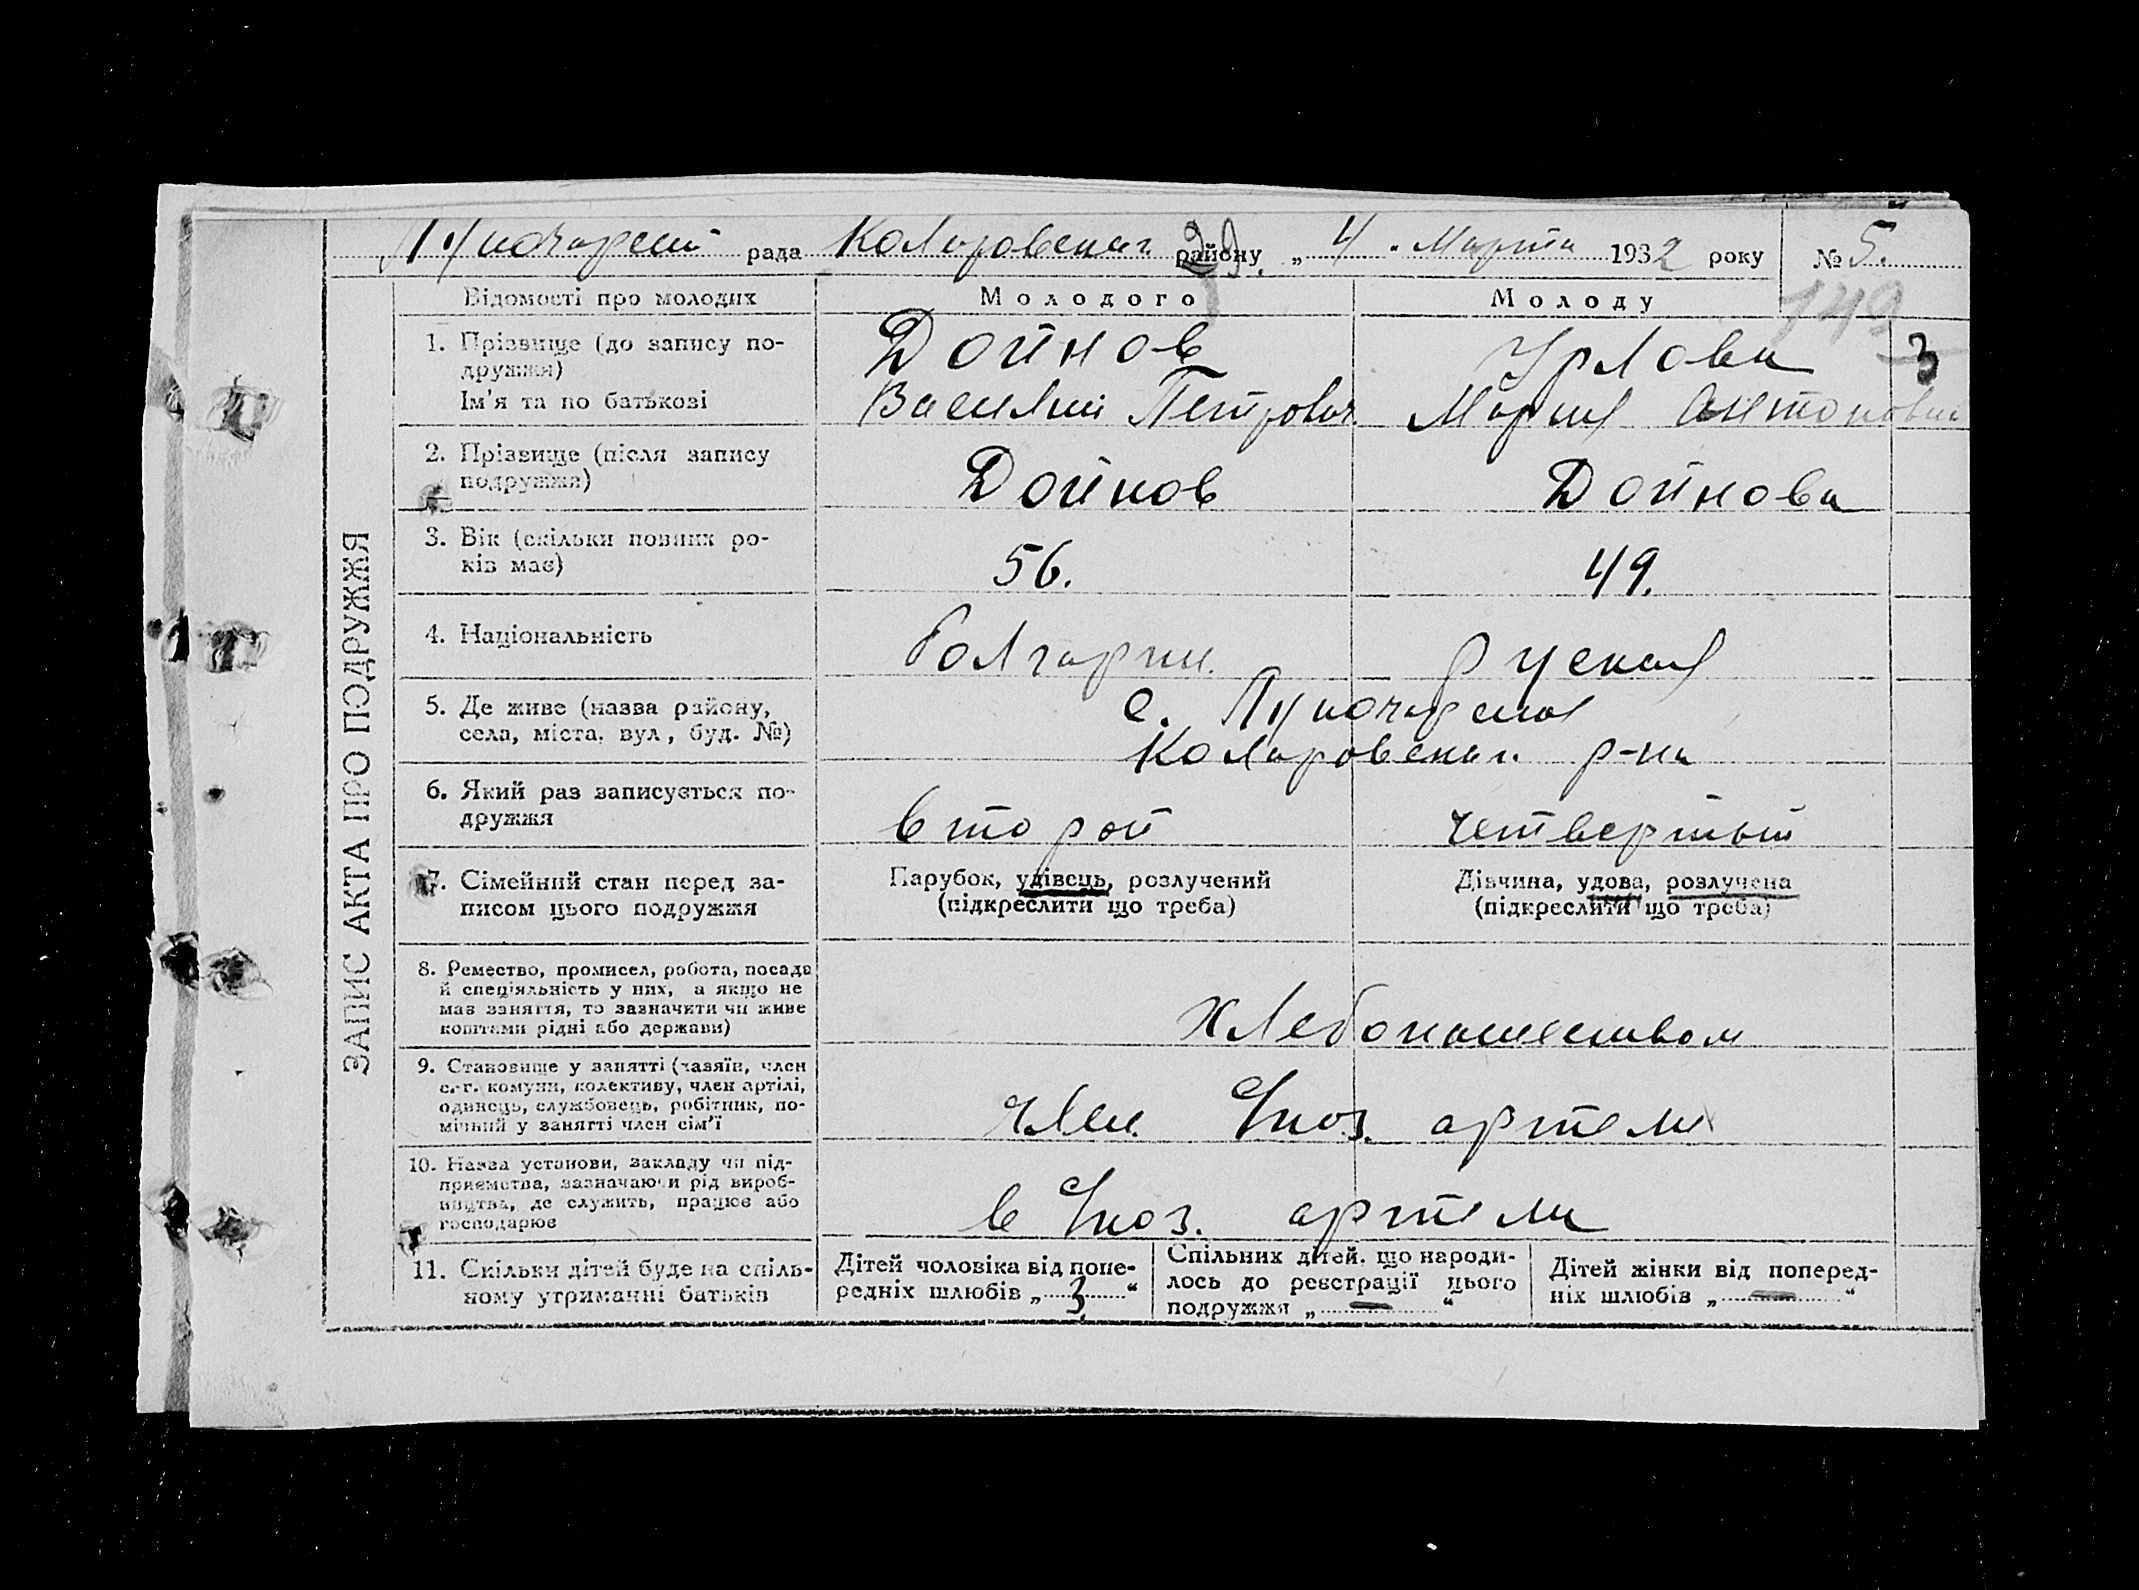 рада Коларовскаг. району „ 4 “ Марта 1932 року № 5.
149
3
ЗАПИС АКТА ПРО ПОДРУЖЖЯ
Відомості про молодих
Молодого
Молоду
1. Прізвище (до запису по-
дружжя)
Ім'я та по батькові
Дойнов
Василий Петрович.
Урлова
Мария Антоновна
2. Прізвище (після запису
подружжя)
Дойнов
Дойнова
3. Вік (скільки повних ро-
ків має)
56.
49.
4. Національність
болгарин.
руская
5. Де живе (назва району,
села, міста, вул., буд. №)
с.
Коларовскаг. р-на
6. Який раз записується по-
дружжя
второй
четвертый
7. Сімейний стан перед за-
писом цього подружжя
Парубок, удівець, розлучений
(підкреслити що треба)
Дівчина, удова, розлучена
(підкреслити що треба)
8. Ремество, промисел, робота, посада
й спеціяльність у них, а якщо не
має заняття, то зазначити чи живе
коштами рідні або держави)
хлебопашеством
9. Становище у занятті (хазяїн, член
с.-г. комуни, колективу, член артілі,
одинець, службовець, робітник, по-
мічний у занятті член сім'ї
член. артели
10. Назва установи, закладу чи під-
приємства, зазначаючи рід вироб-
ництва, де служить, працює або
господарює
в артели
11. Скільки дітей буде на спіль-
ному утриманні батьків
Дітей чоловіка від попе-
редніх шлюбів „ 3 “
Спільних дітей, що народи-
лось до реєстрації цього
подружжя „ — “
Дітей жінки від поперед-
ніх шлюбів „ — “